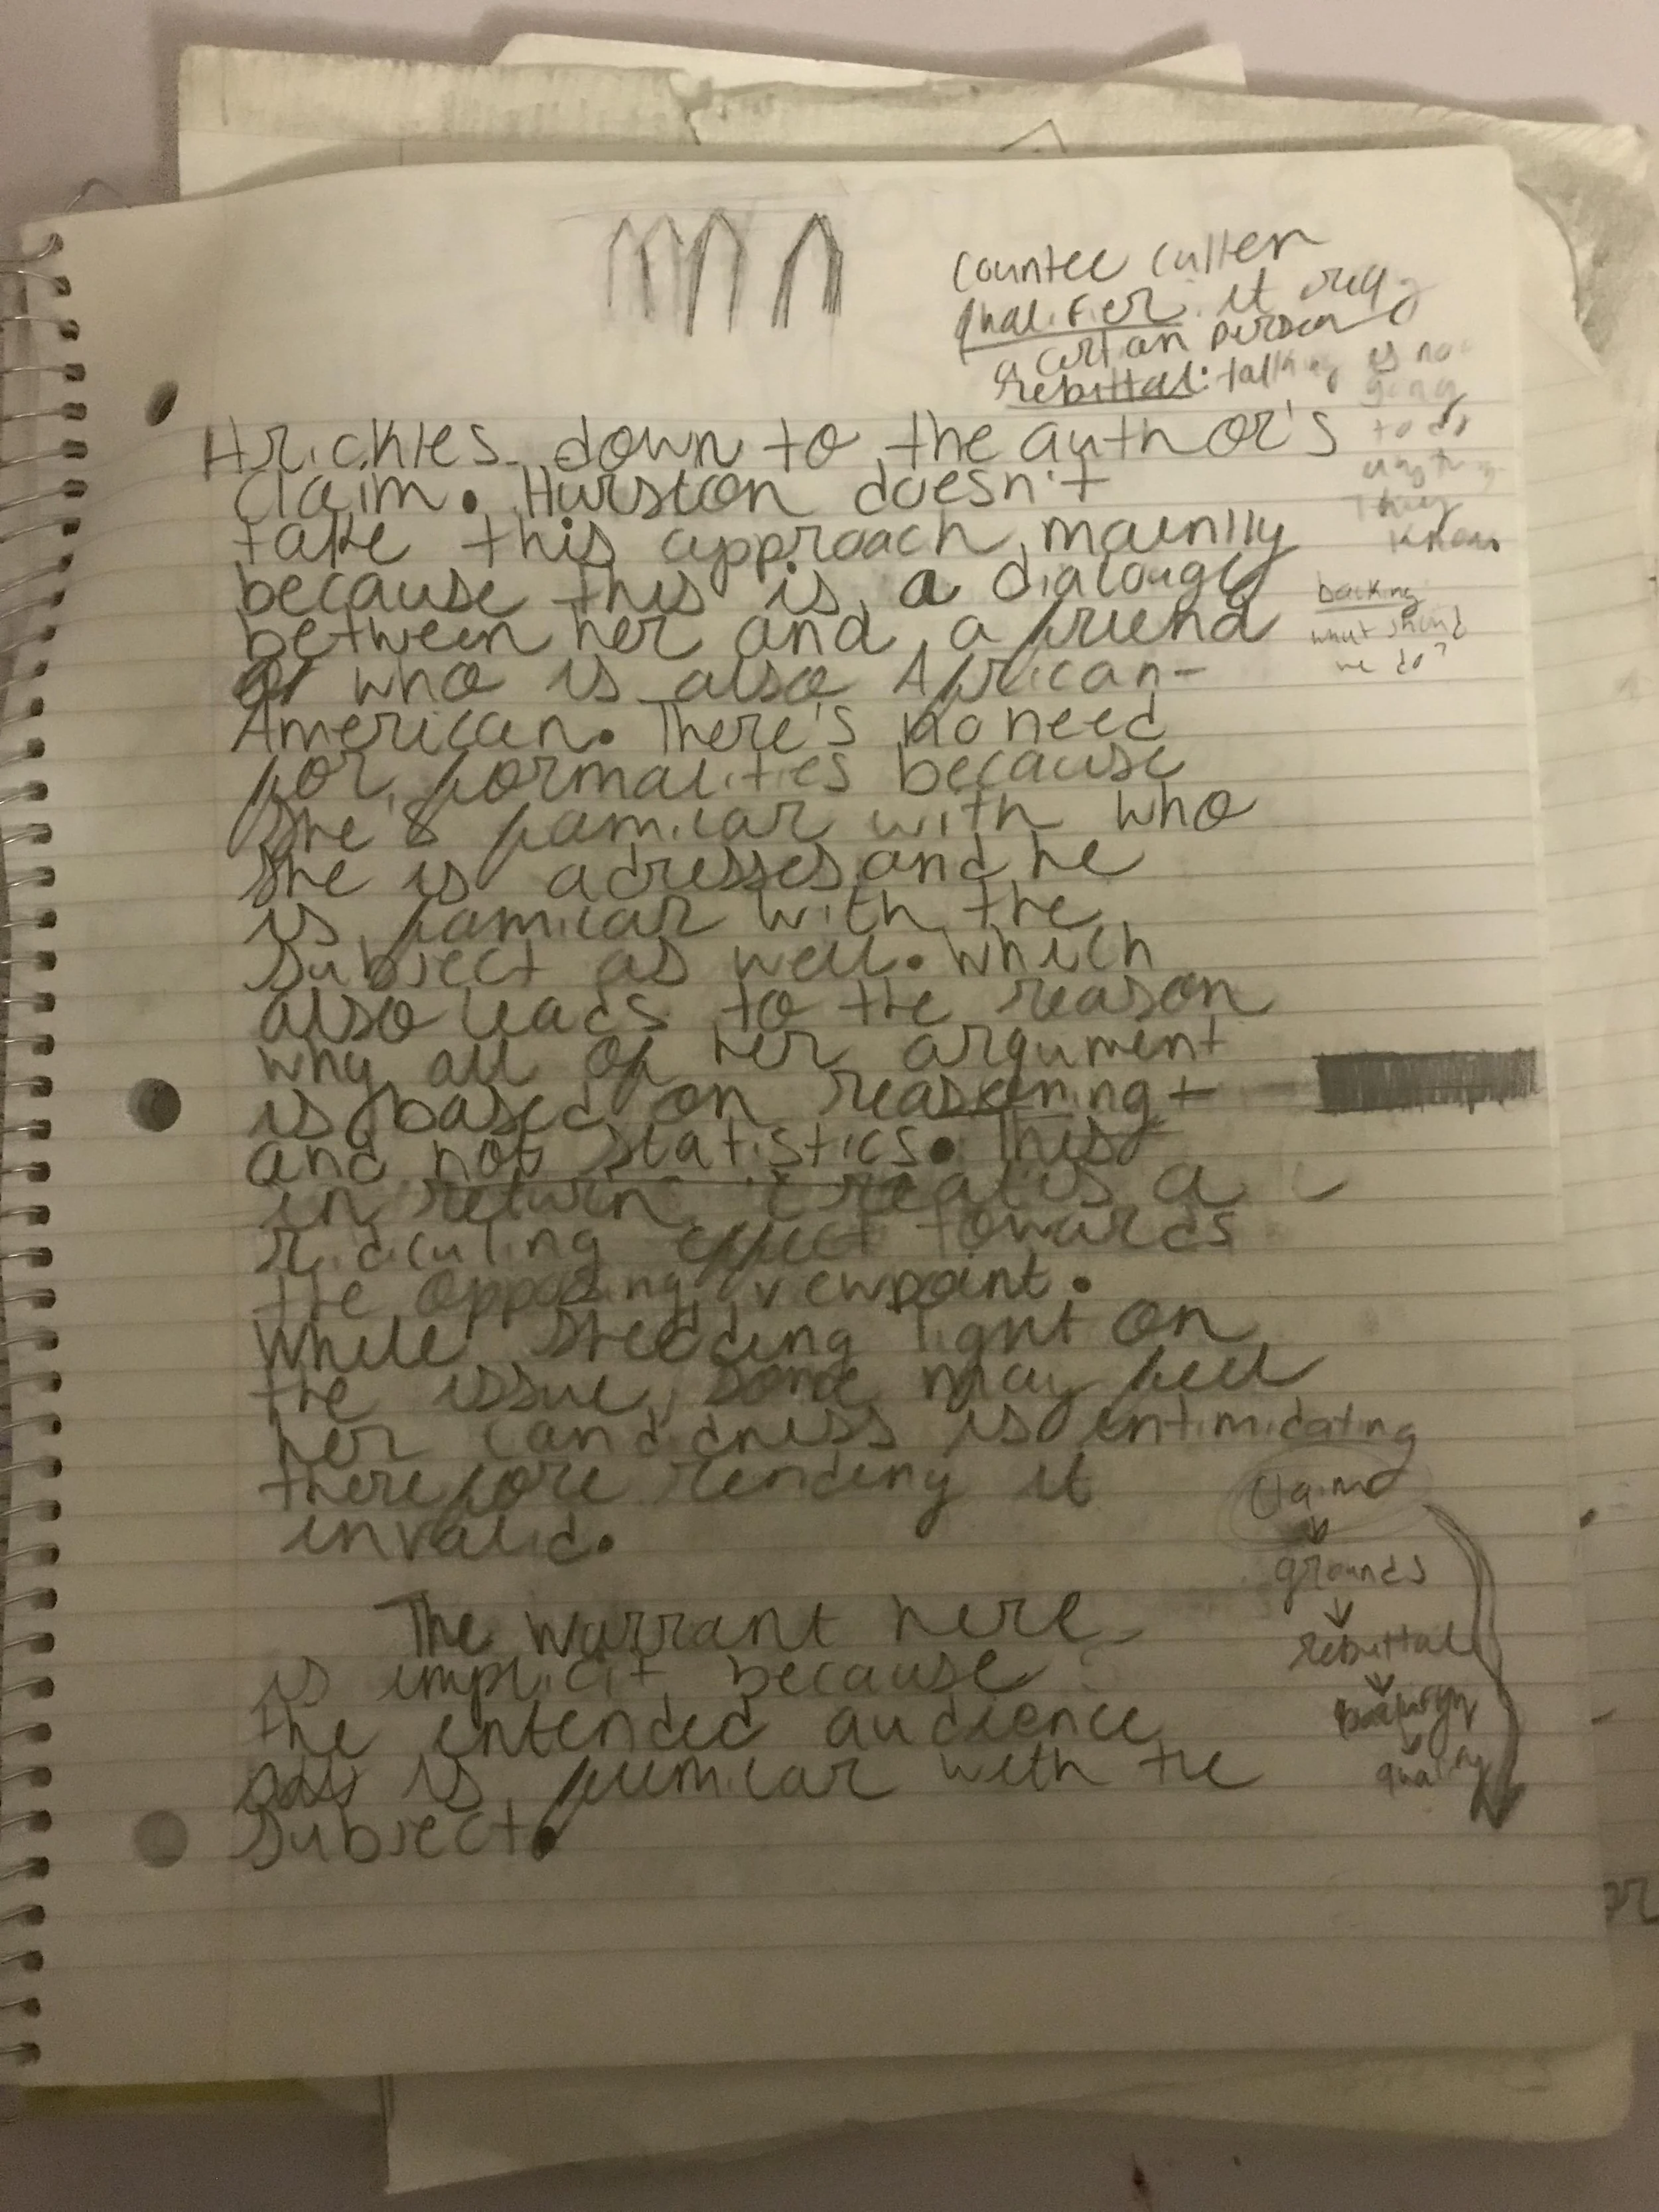 Countee Cullen
qualifier: it
a certan person
rebuttal: talking is not
going
to do
anything
they
know
trickles down to the author's
claim. Hurston doesn't
take this approach mainlly
because this is a dialougly
between her and a friend
who is also African-
American. There's no need
for formalities because
she's familar with who
she is adresses and he
is familar with the
subject as well. Which
also leads to the reason
why all of her argument
is based on reasoning
and not statistics. This
in return creates a
ridiculing effect towards
the opposing viewpoint.
While shedding light on
the issue, some may feel
her candidness is intimidating
therefore rendeny it
invalid.
The warrant here
is implicit because
the intended audience
is familar with the
subject.
backing
what should
we do?
Claim
grounds
rebuttal